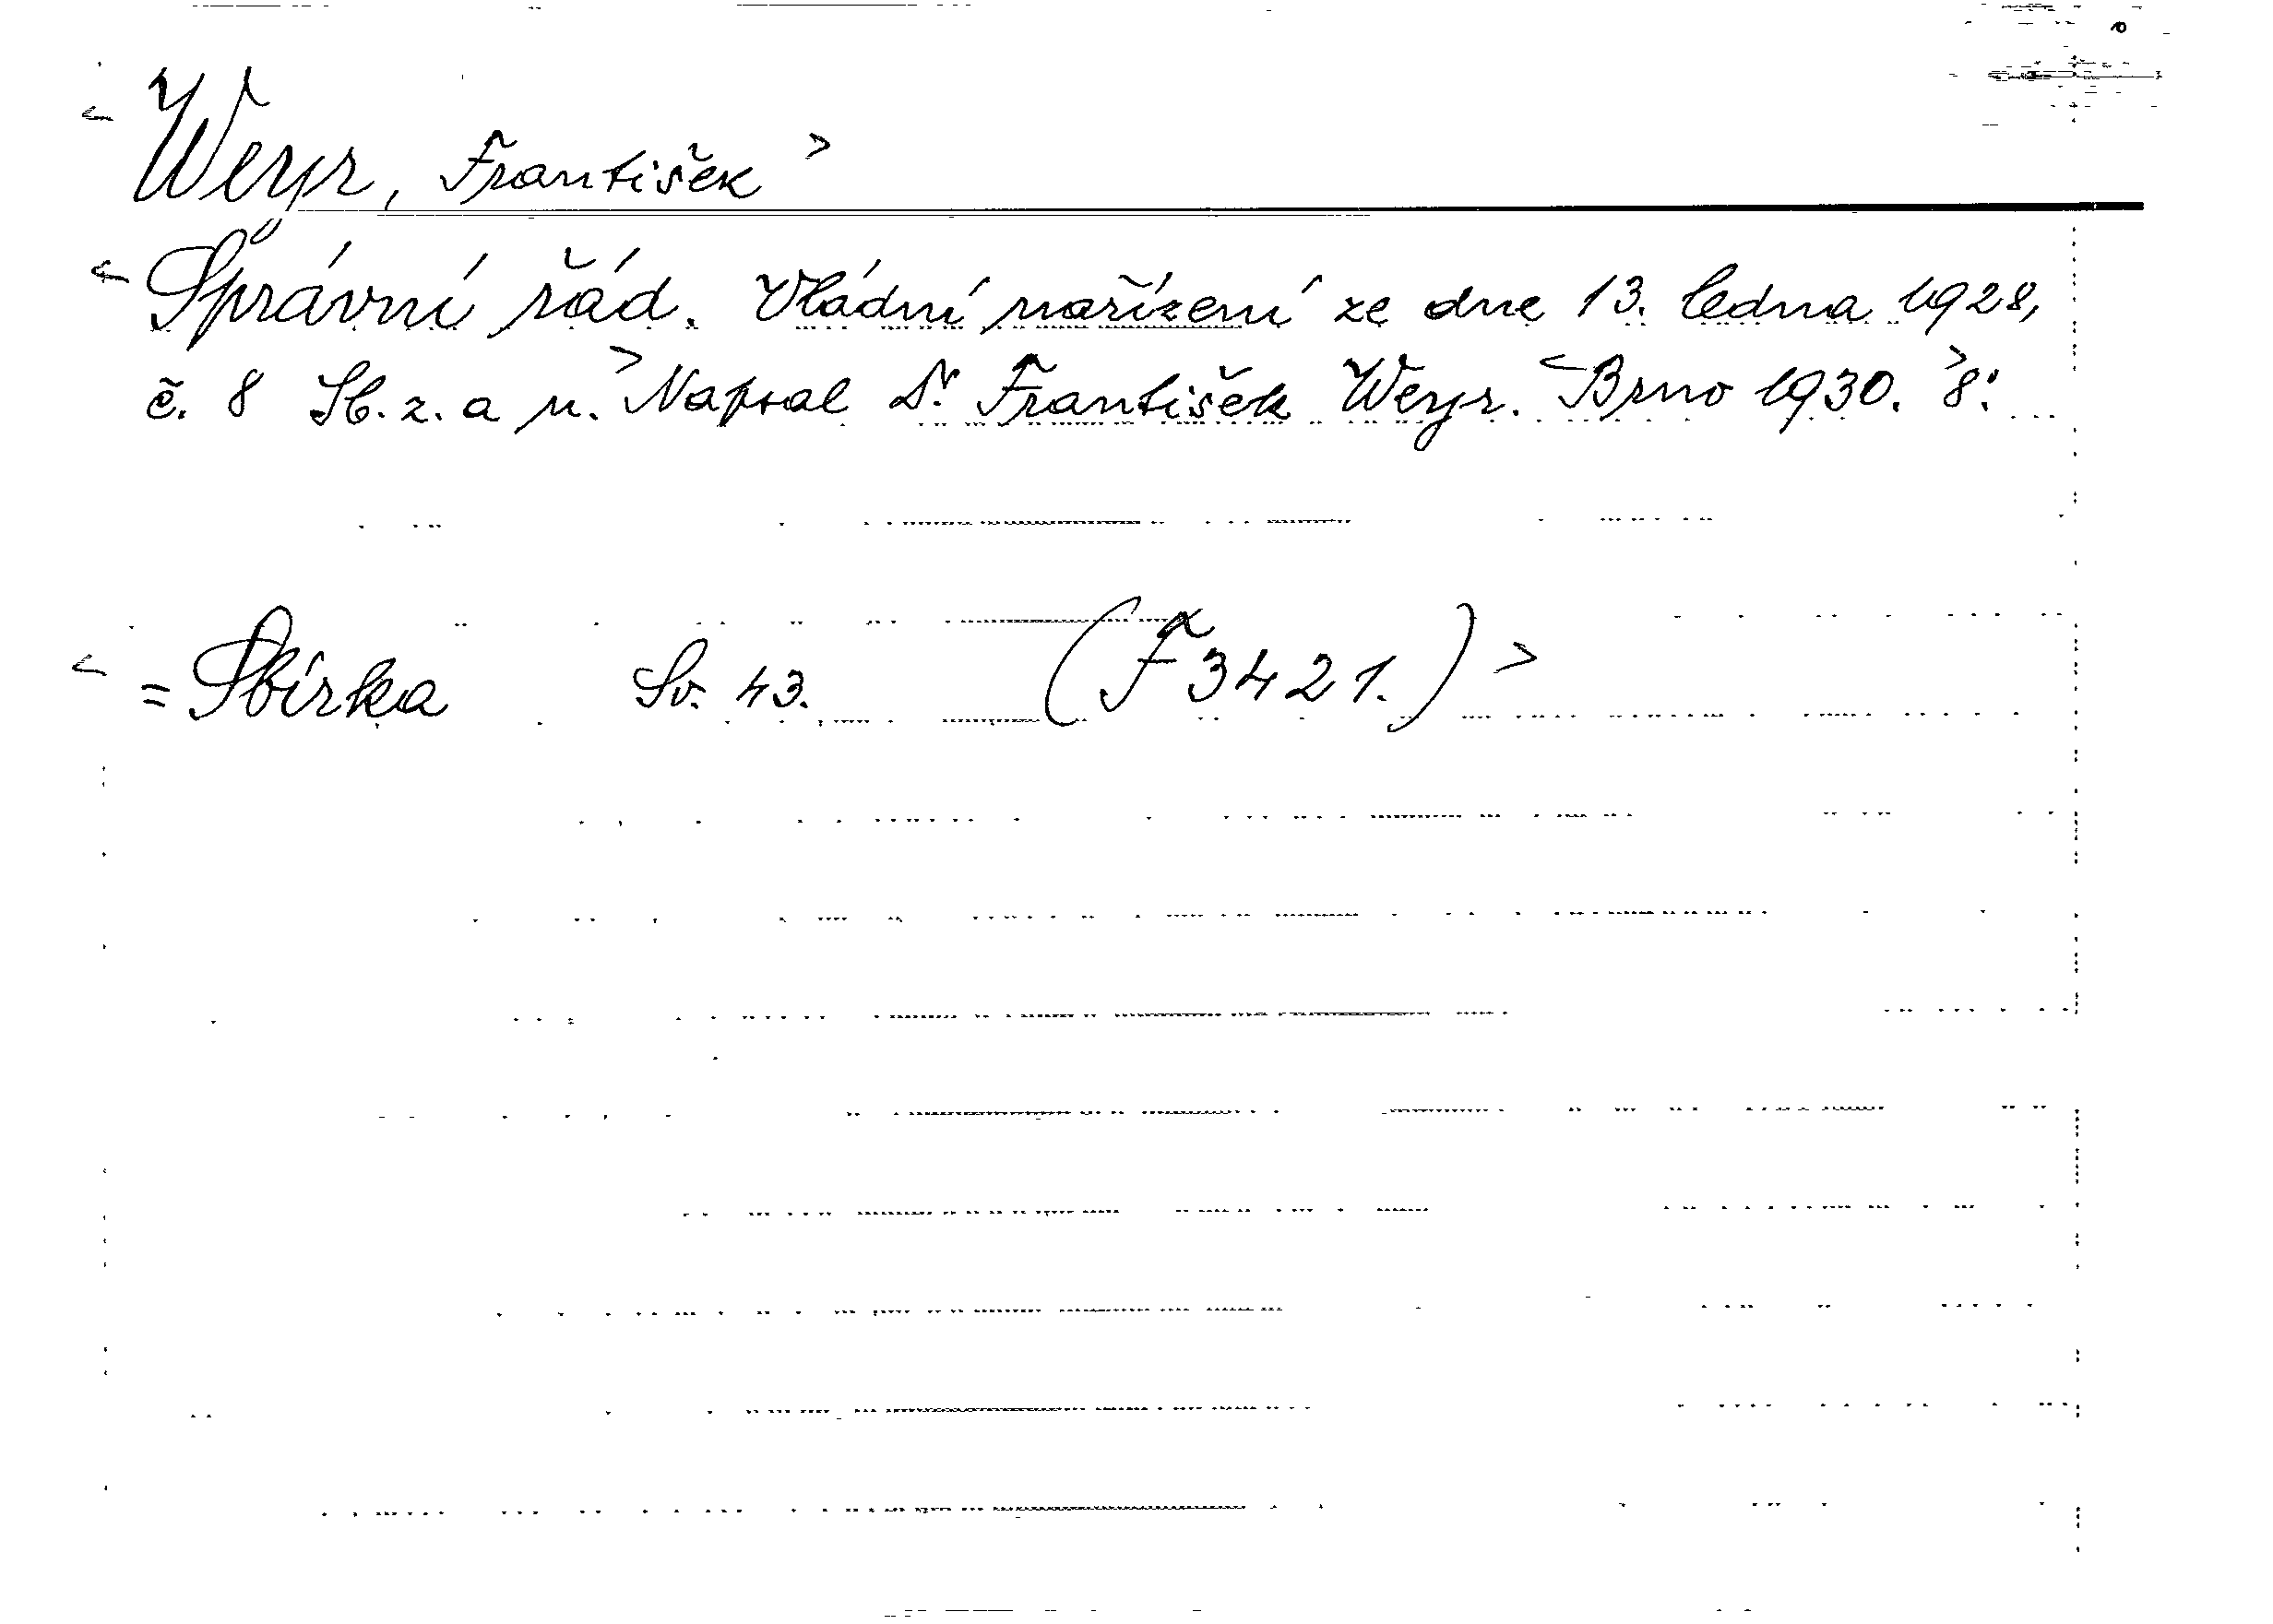 < Weyr, František >
< Správní řád. Vládní nařízení ze dne 13. ledna 1928,
č. 8 Sb. z. a n. > Napsal Dr. František Weyr. < Brno 1930. > 8°.
< = Sbírka Sv. 43. (F 3421.) >